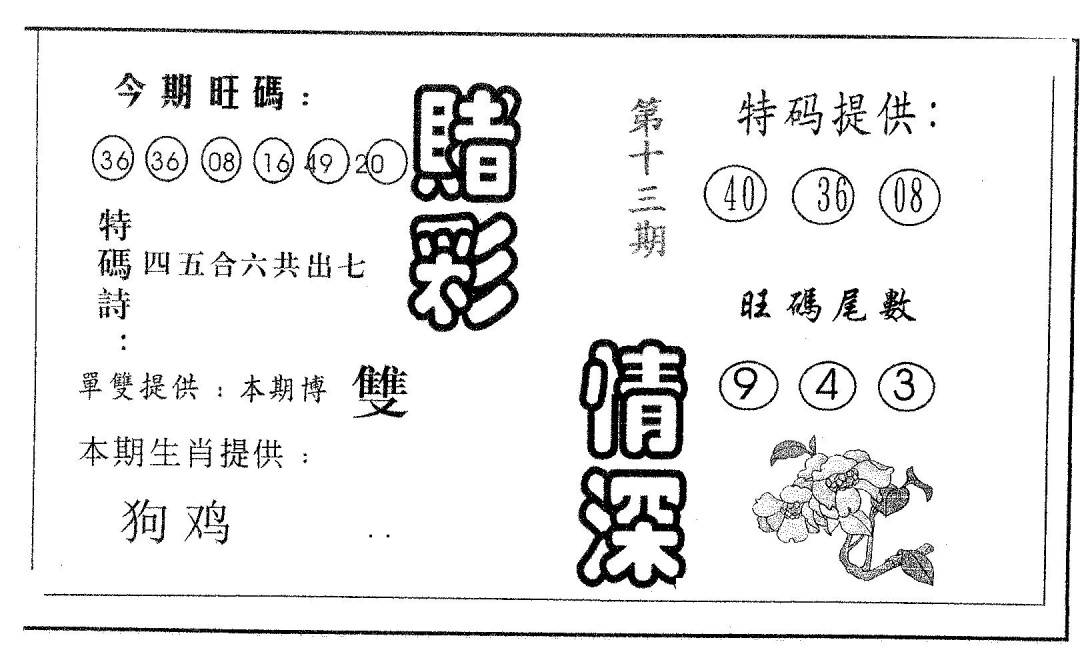 今期旺碼：
36 36 08 16 49 20
特碼詩：
四五合六共出七
單雙提供：本期博 雙
本期生肖提供：
狗鸡
賭彩
情深
第十三期
特码提供：
40 36 08
旺碼尾數
9 4 3